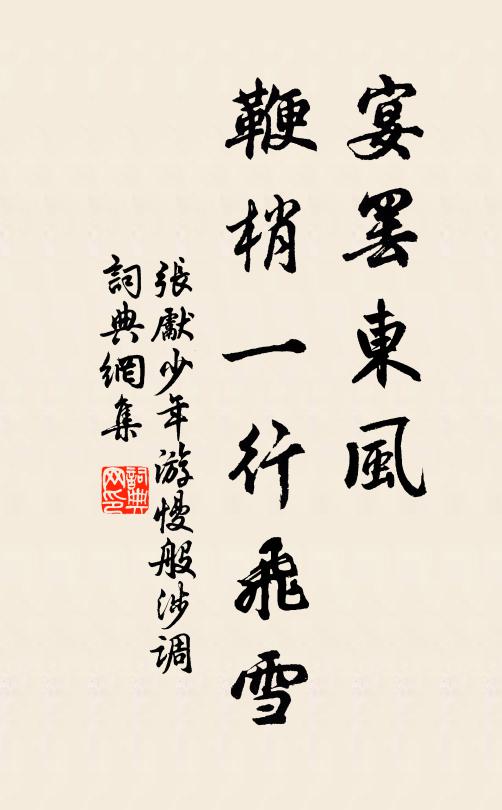 宴罷東風
鞭梢一行飛雪
張獻少年游慢般涉調
詞典網集
詞典網印